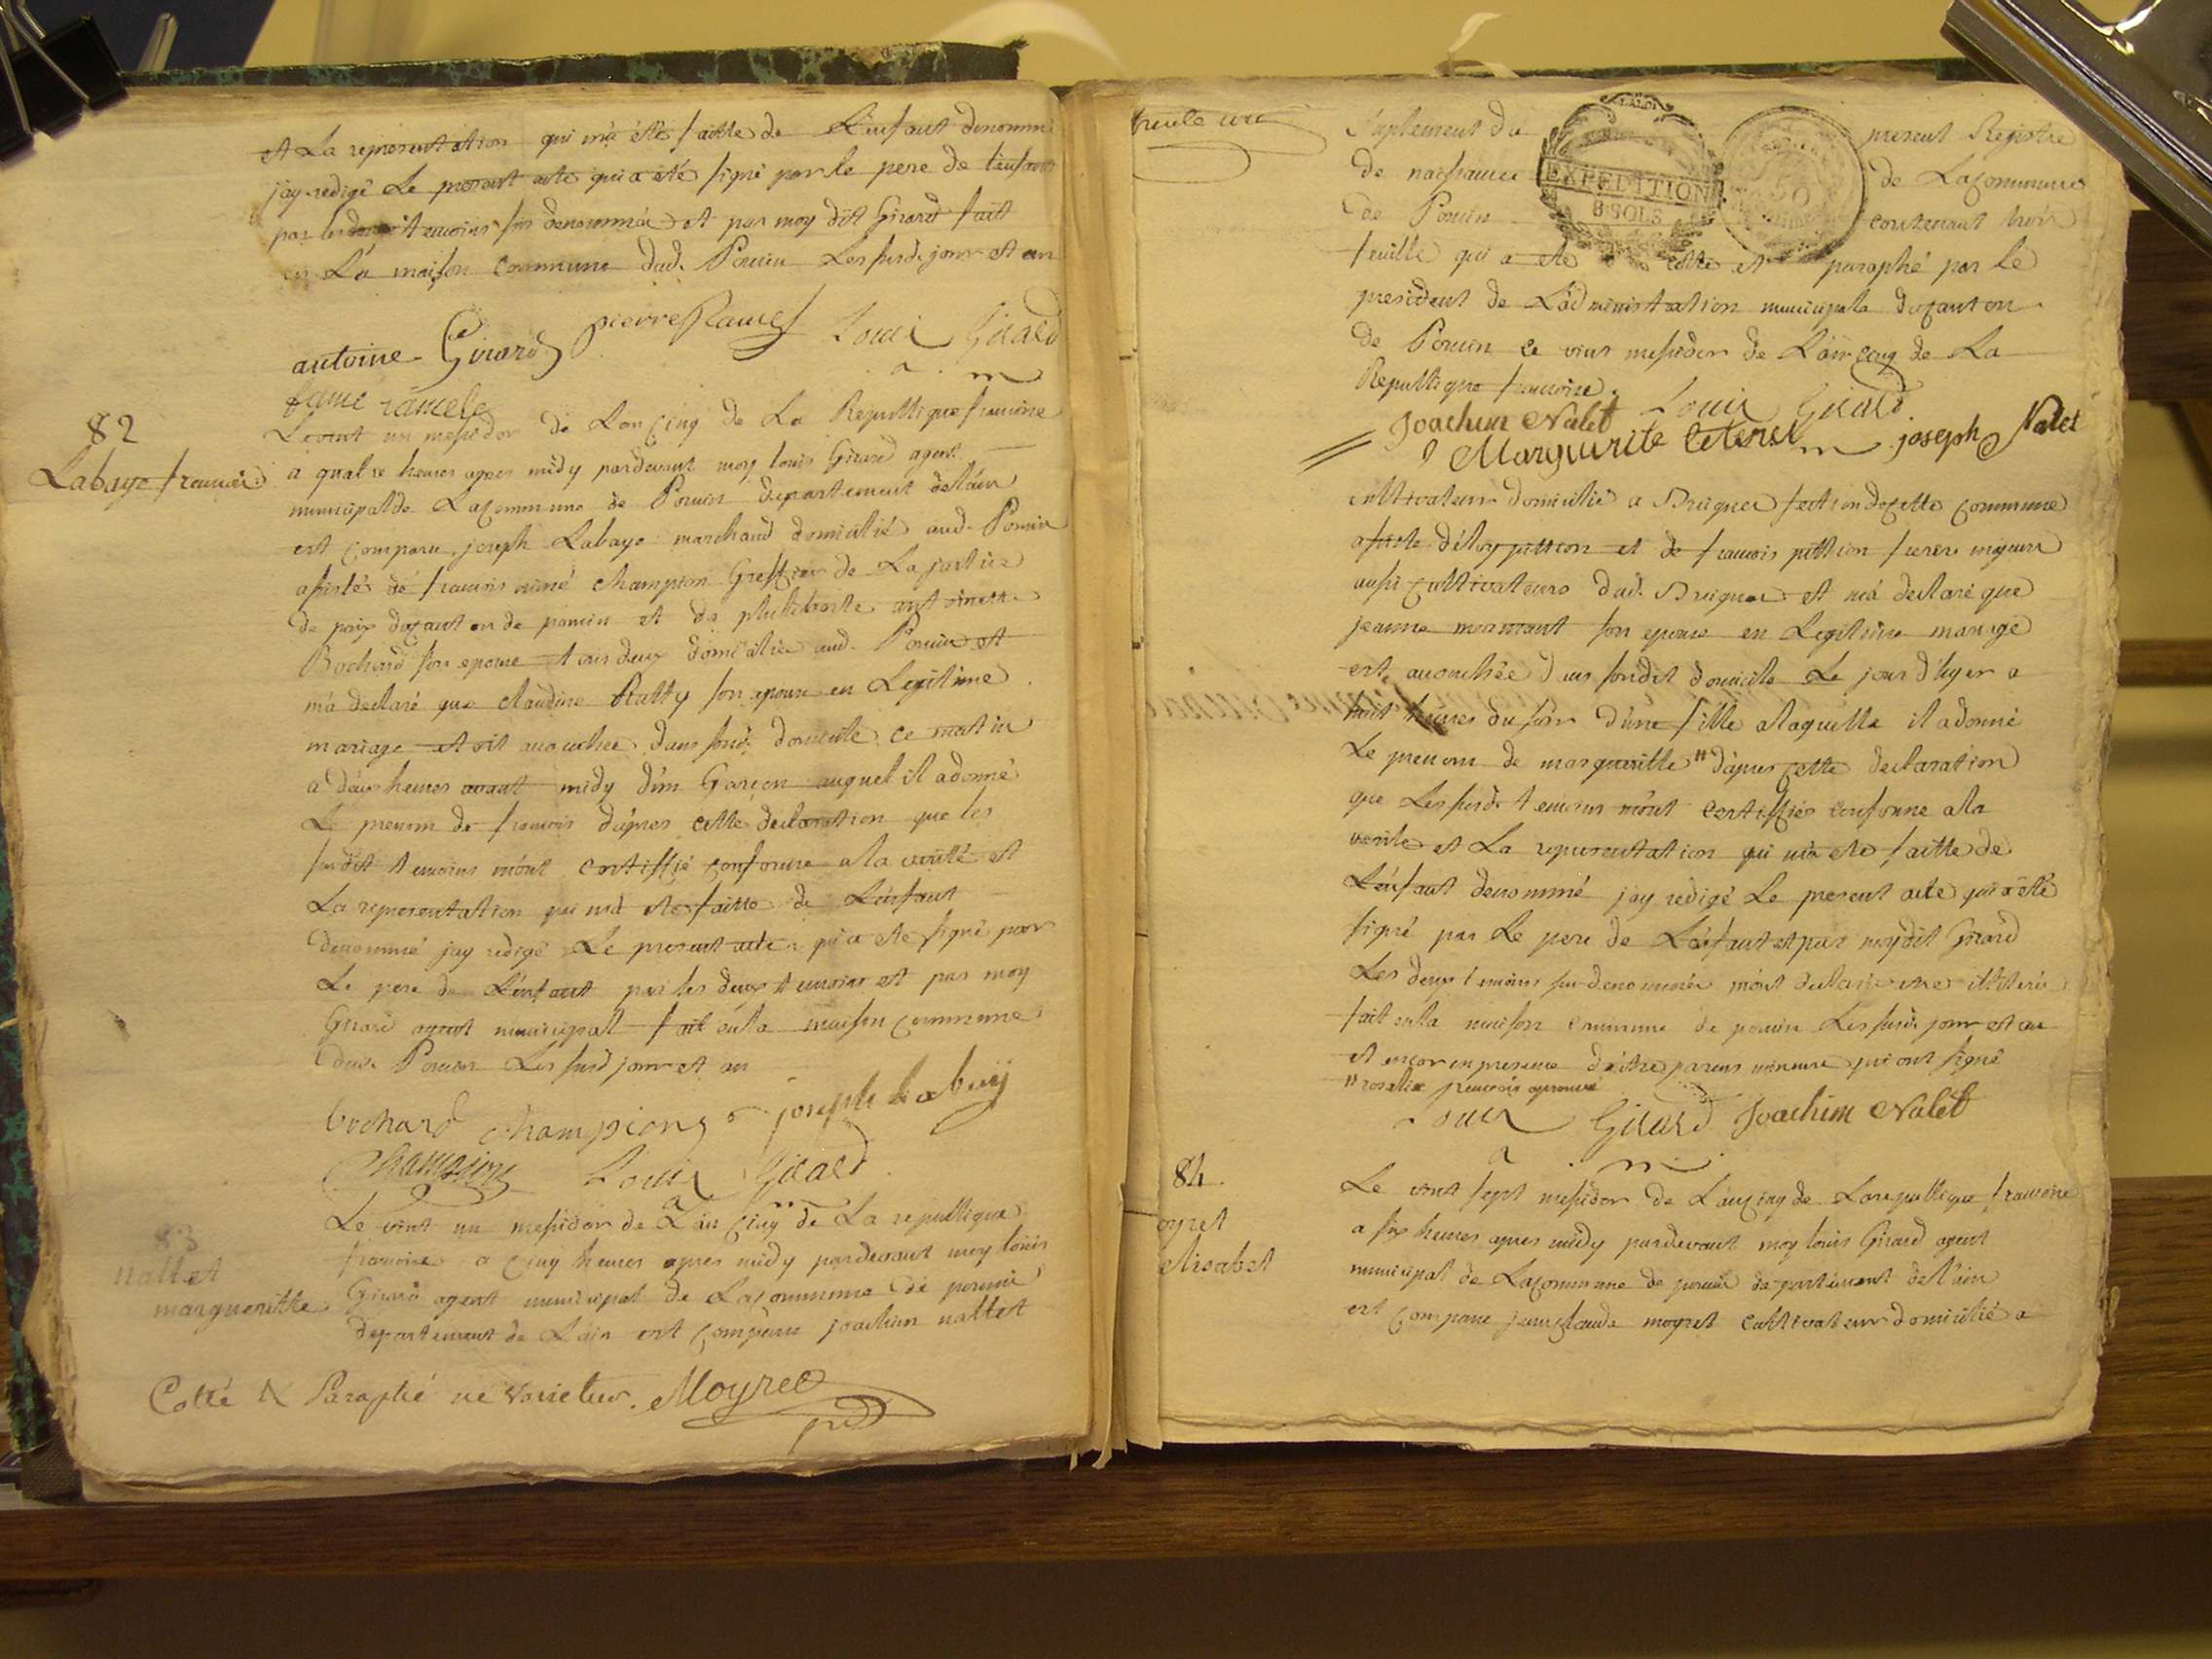 et La representation qui m'a été faitte de L'enfant denommé
jay redigé Le present acte qui a été signé par le pere de l'enfant
par les temoins sus denommés et par moy dit Girard fait
en La maison commune dud. Poncin Les susd. jour et an
antoine Girard pierre Louis Girard
a. m
82
Labaye francois
Le vint un messidor de L'an cinq de La Republique francoise
a quatre heures apres midy pardevant moy louis Girard agent
municipal de Lacommune de Poncin departement de l'ain
est comparu joseph Labaye marchand domicilié aud. Poncin
assisté de francois aimé champion Greffier de La justice
de paix du canton de poncin et de philiberte antoinette
Bochard son epouse tous deux domiciliés aud. Poncin et
m'a declaré que claudine Ratty son epouse en Legitime
mariage etoit accouchée dans sond. domicile ce matin
a deux heures avant midy d'un Garcon auquel il a donné
Le prenom de francois d'apres cette declaration que les
susdit temoins m'ont certiffié conforme a la verité et
La representation qui m'a eté faitte de L'enfant
denommé jay redigé Le present acte qui a eté signé par
Le pere de L'enfant par les deux temoins et par moy
Girard agent municipal fait en la maison commune
dud. Poncin Les susd jour et an
bochard champion joseph labaÿ
champion Louis Girard
a m
83
nallet
margueritte
Le vint un messidor de L'an cinq de La republique
francoise a cinq heures apres midy pardevant moy louis
Girard agent municipal de Lacommune de poncin
departement de L'ain est comparu joachim nallet
Cotté & Paraphé ne varietur. Moyret
prdt
trente un
Suplement du present Registre
de naissance de Lacommune
EXPEDITION
8 SOLS
50
de Poncin contenant trois
feuille qui a eté cotté et paraphé par le
president de L'administration municipale du canton
de Poncin ce vint messidor de L'an cinq de La
Republique francoise.
Joachim Nalet Louis Girard
Margurite joseph Nalet
cultivateur domicilié a Bruignes section de cette commune
assisté d'eloy pittion et de francois pittion freres majeurs
aussi cultivateurs dud. Bruignes et m'a declaré que
jeanne mermant son epouse en Legitime mariage
est accouchée dans sondit domicile Le jour d'hyer a
huit heures du soir d'une fille a laquelle il a donné
Le prenom de margueritte " d'apres cette declaration
que Les susd. temoins m'ont certiffiés conforme a la
verité et La representation qui m'a eté faitte de
L'enfant denommé jay redigé Le present acte qui a été
signé par Le pere de L'enfant et par moy dit Girard
Les deux temoins sus denommés m'ont declaré etre illiterés
fait en la maison commune de poncin Les susd. jour et an
et encor en presence d'autre parens mineure qui ont signé
" rosalie prenom aprouvé
Louis Girard Joachim Nalet
a m
84
oyret
elisabet
Le vint sept messidor de L'an cinq de La republique francoise
a six heures apres midy pardevant moy louis Girard agent
municipal de Lacommune de poncin departement de l'ain
est comparu jean claude moyret cultivateur domicilié a